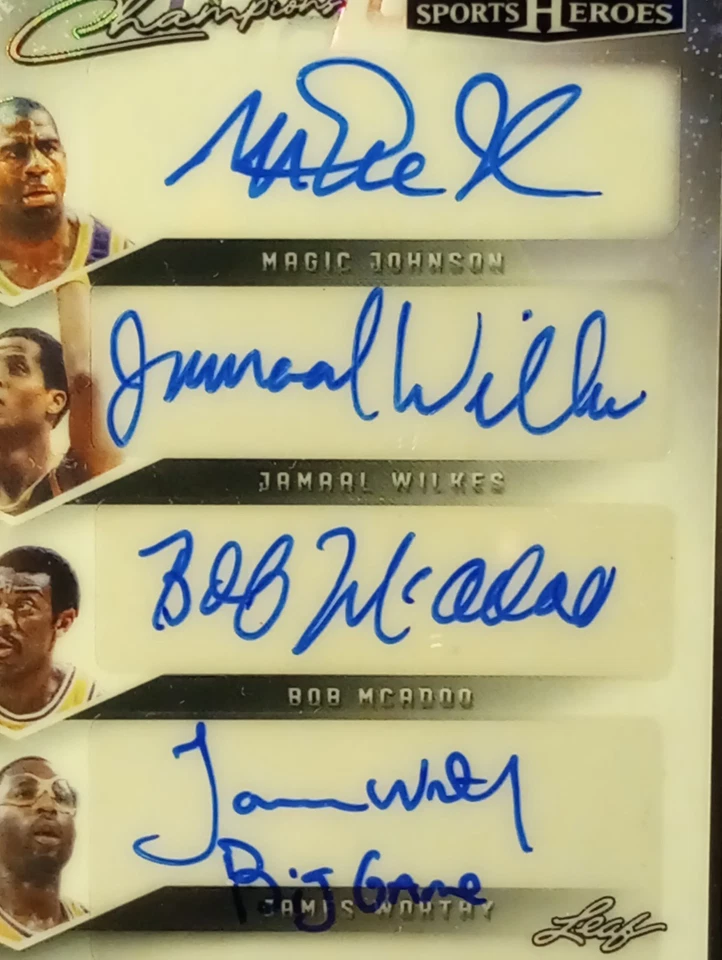 Champions SPORTS HEROES
Magic J
MAGIC JOHNSON
Jamaal Wilkes
JAMAAL WILKES
Bob McAdoo
BOB MCADOO
James Worthy
Big Game
JAMES WORTHY
Leaf